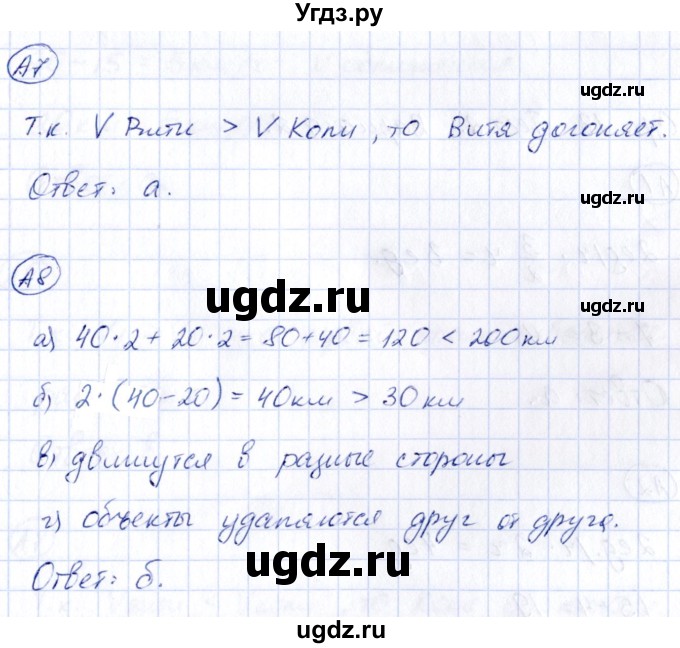 Угдз.ру
А7
ugdz.ru
Т.к. V Вити > V Коли, то Витя догоняет.
Ответ: а.
ugdz.ru
А8
ugdz.ru
ugdz.ru
а) 40·2+20·2=80+40=120<200км
б) 2·(40-20)=40км>30км
в) движутся в разные стороны
г) объекты удаляются друг от друга.
ugdz.ru
Ответ: б.
ugdz.ru
ugdz.ru